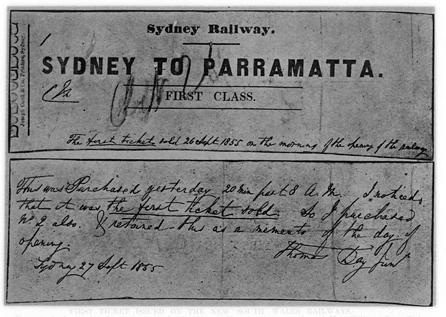 Sydney Railway.
1
SYDNEY TO PARRAMATTA.
FIRST CLASS.
The first ticket sold 26 Sept 1855 on the morning of the opening of the railway
This was Purchased yesterday 20 min past 8 A.M. I noticed
that it was the first ticket sold. So I purchased
No 2 also. & retained this as a memento of the day of
opening.
Thomas Day Junr
Sydney 27 Sept 1855
FIRST TICKET ISSUED ON THE NEW SOUTH WALES RAILWAYS.